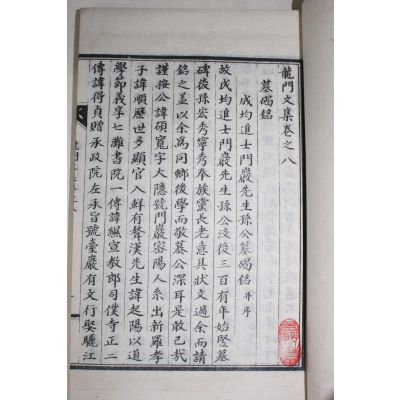 龍門文集卷之八
墓碣銘
成均進士門巖先生孫公墓碣銘 并序
故成均進士門巖先生孫公沒後三百有年始竪墓
碑後孫宏秀寧秀奉族黨長老意具狀文過余而請
銘之盖以余爲同鄕後學而敬慕公深耳是敢已㢤
謹按公諱碩寬字大隱號門巖密陽人系出新羅孝
子諱順歷世多顯官入鮮有聲漢先生諱起陽以道
學節義享七灘書院一傳諱㵩宣敎郞司僕寺正二
傳諱得貞贈承政院左承旨號臺巖有文行娶驪江